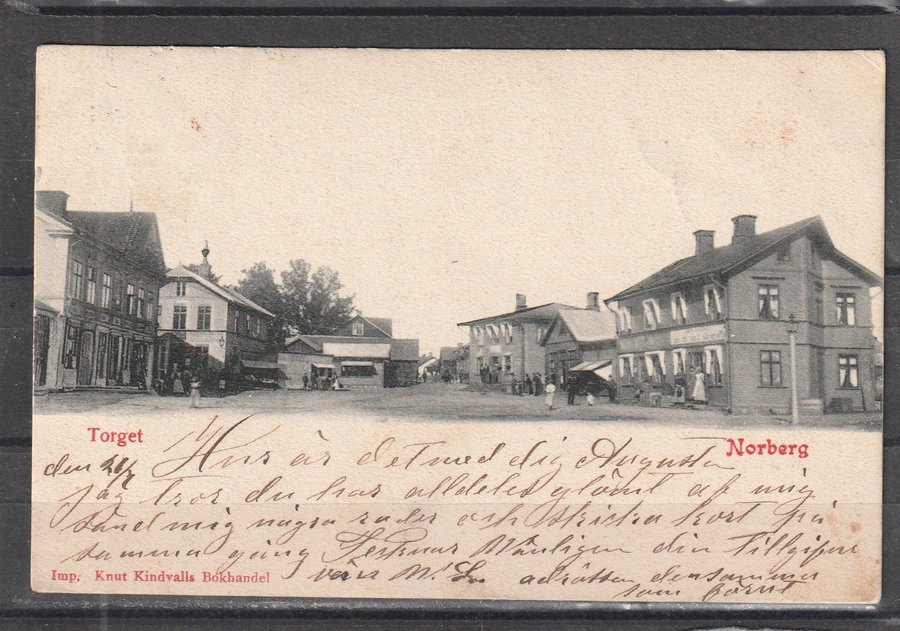 Torget
Norberg
den 26/7 Hur är det med dig Augusta
jag tror du har alldeles glömt af mig
sänd mig några rader och skicka kort på
samma gång Tecknar Vänligen din Tillgifne
vän adrätten densamma
som förut
Imp. Knut Kindvalls Bokhandel